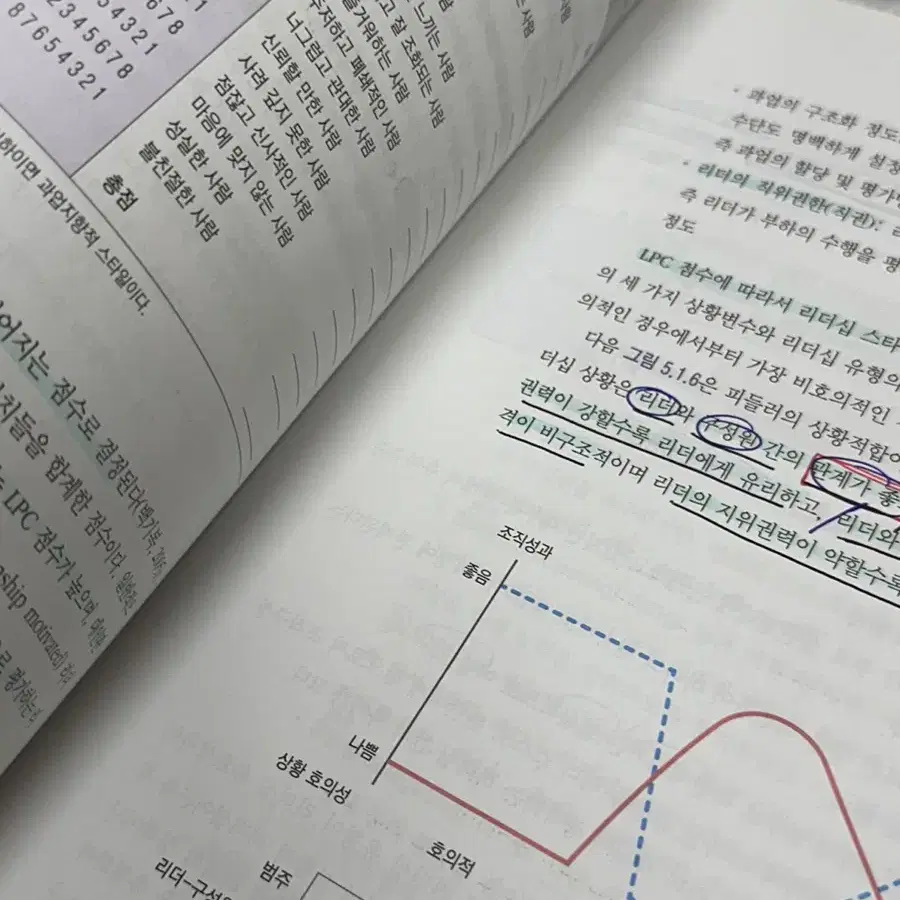 1
8
54321
345678
2345678
87654321
느끼는 사람
고 잘 조화되는 사람
즐거워하는 사람
주저하고 폐쇄적인 사람
너그럽고 관대한 사람
신뢰할 만한 사람
사려 깊지 못한 사람
점잖고 신사적인 사람
마음에 맞지 않는 사람
성실한 사람
불친절한 사람
총점
이하이면 과업지향적 스타일이다.
어지는 점수로 결정된다(백기복,
치들을 합계한 점수이다.
LPC 점수가 높으며,
ship motivated)
· 과업의 구조화 정도
수단도 명백하게 설정
즉 과업의 할당 및 평가
· 리더의 직위권한(직권):
즉 리더가 부하의 수행을 평
정도
LPC 점수에 따라서 리더십 스타
의 세 가지 상황변수와 리더십 유형의
의적인 경우에서부터 가장 비호의적인
다음 그림 5.1.6은 피들러의 상황적합이
더십 상황은 리더와 구성원 간의 관계가 좋
권력이 강할수록 리더에게 유리하고, 리더와
격이 비구조적이며 리더의 지위권력이 약할수록
조직성과
좋음
나쁨
상황 호의성
호의적
범주
리더-구성원